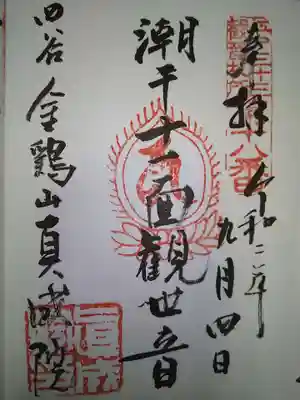 奉拝
令和二年
九月四日
潮干十一面観世音
四谷
金鶏山真成院